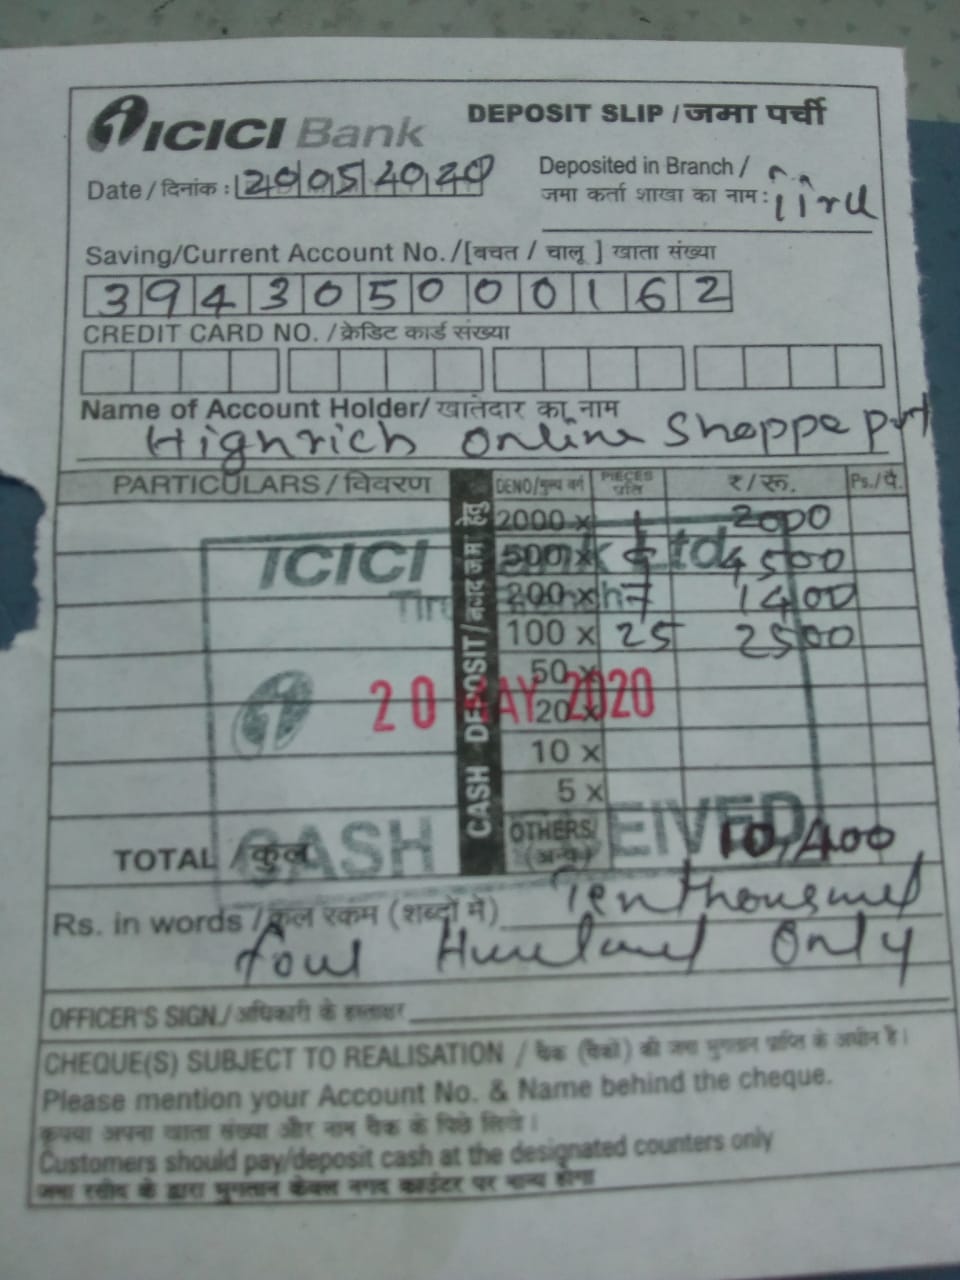 ICICI Bank
DEPOSIT SLIP / जमा पर्ची
Date / दिनांक : 20052020
Deposited in Branch /
जमा कर्ता शाखा का नाम :
Saving/Current Account No. /[बचत / चालू ] खाता संख्या
394305000162
CREDIT CARD NO. / क्रेडिट कार्ड संख्या
Name of Account Holder/ खातेदार का नाम
Highrich Online Shoppe Pvt
PARTICULARS / विवरण
CASH DEPOSIT / नकद जमा हेतु
DENO/मुल्य वर्ग PIECES प्रति ₹/रू. Ps./पै.
2000 x 1 2000
500 x 4500
200 x 7 1400
100 x 25 2500
50 x
20 x
10 x
5 x
OTHERS/ (अन्य)
TOTAL / कुल 10,400
ICICI Bank Ltd
20 MAY 2020
CASH RECEIVED
Rs. in words / कुल रकम (शब्दों में) Ten thousand
four Hundred Only
OFFICER'S SIGN./ अधिकारी के हस्ताक्षर
CHEQUE(S) SUBJECT TO REALISATION / चैक (चैकों) की जमा भुगतान प्राप्ति के अधीन है।
Please mention your Account No. & Name behind the cheque.
कृपया अपना खाता संख्या और नाम चैक के पिछे लिखे।
Customers should pay/deposit cash at the designated counters only
जमा रसीद के द्वारा भुगतान केवल नगद काउंटर पर मान्य होगा